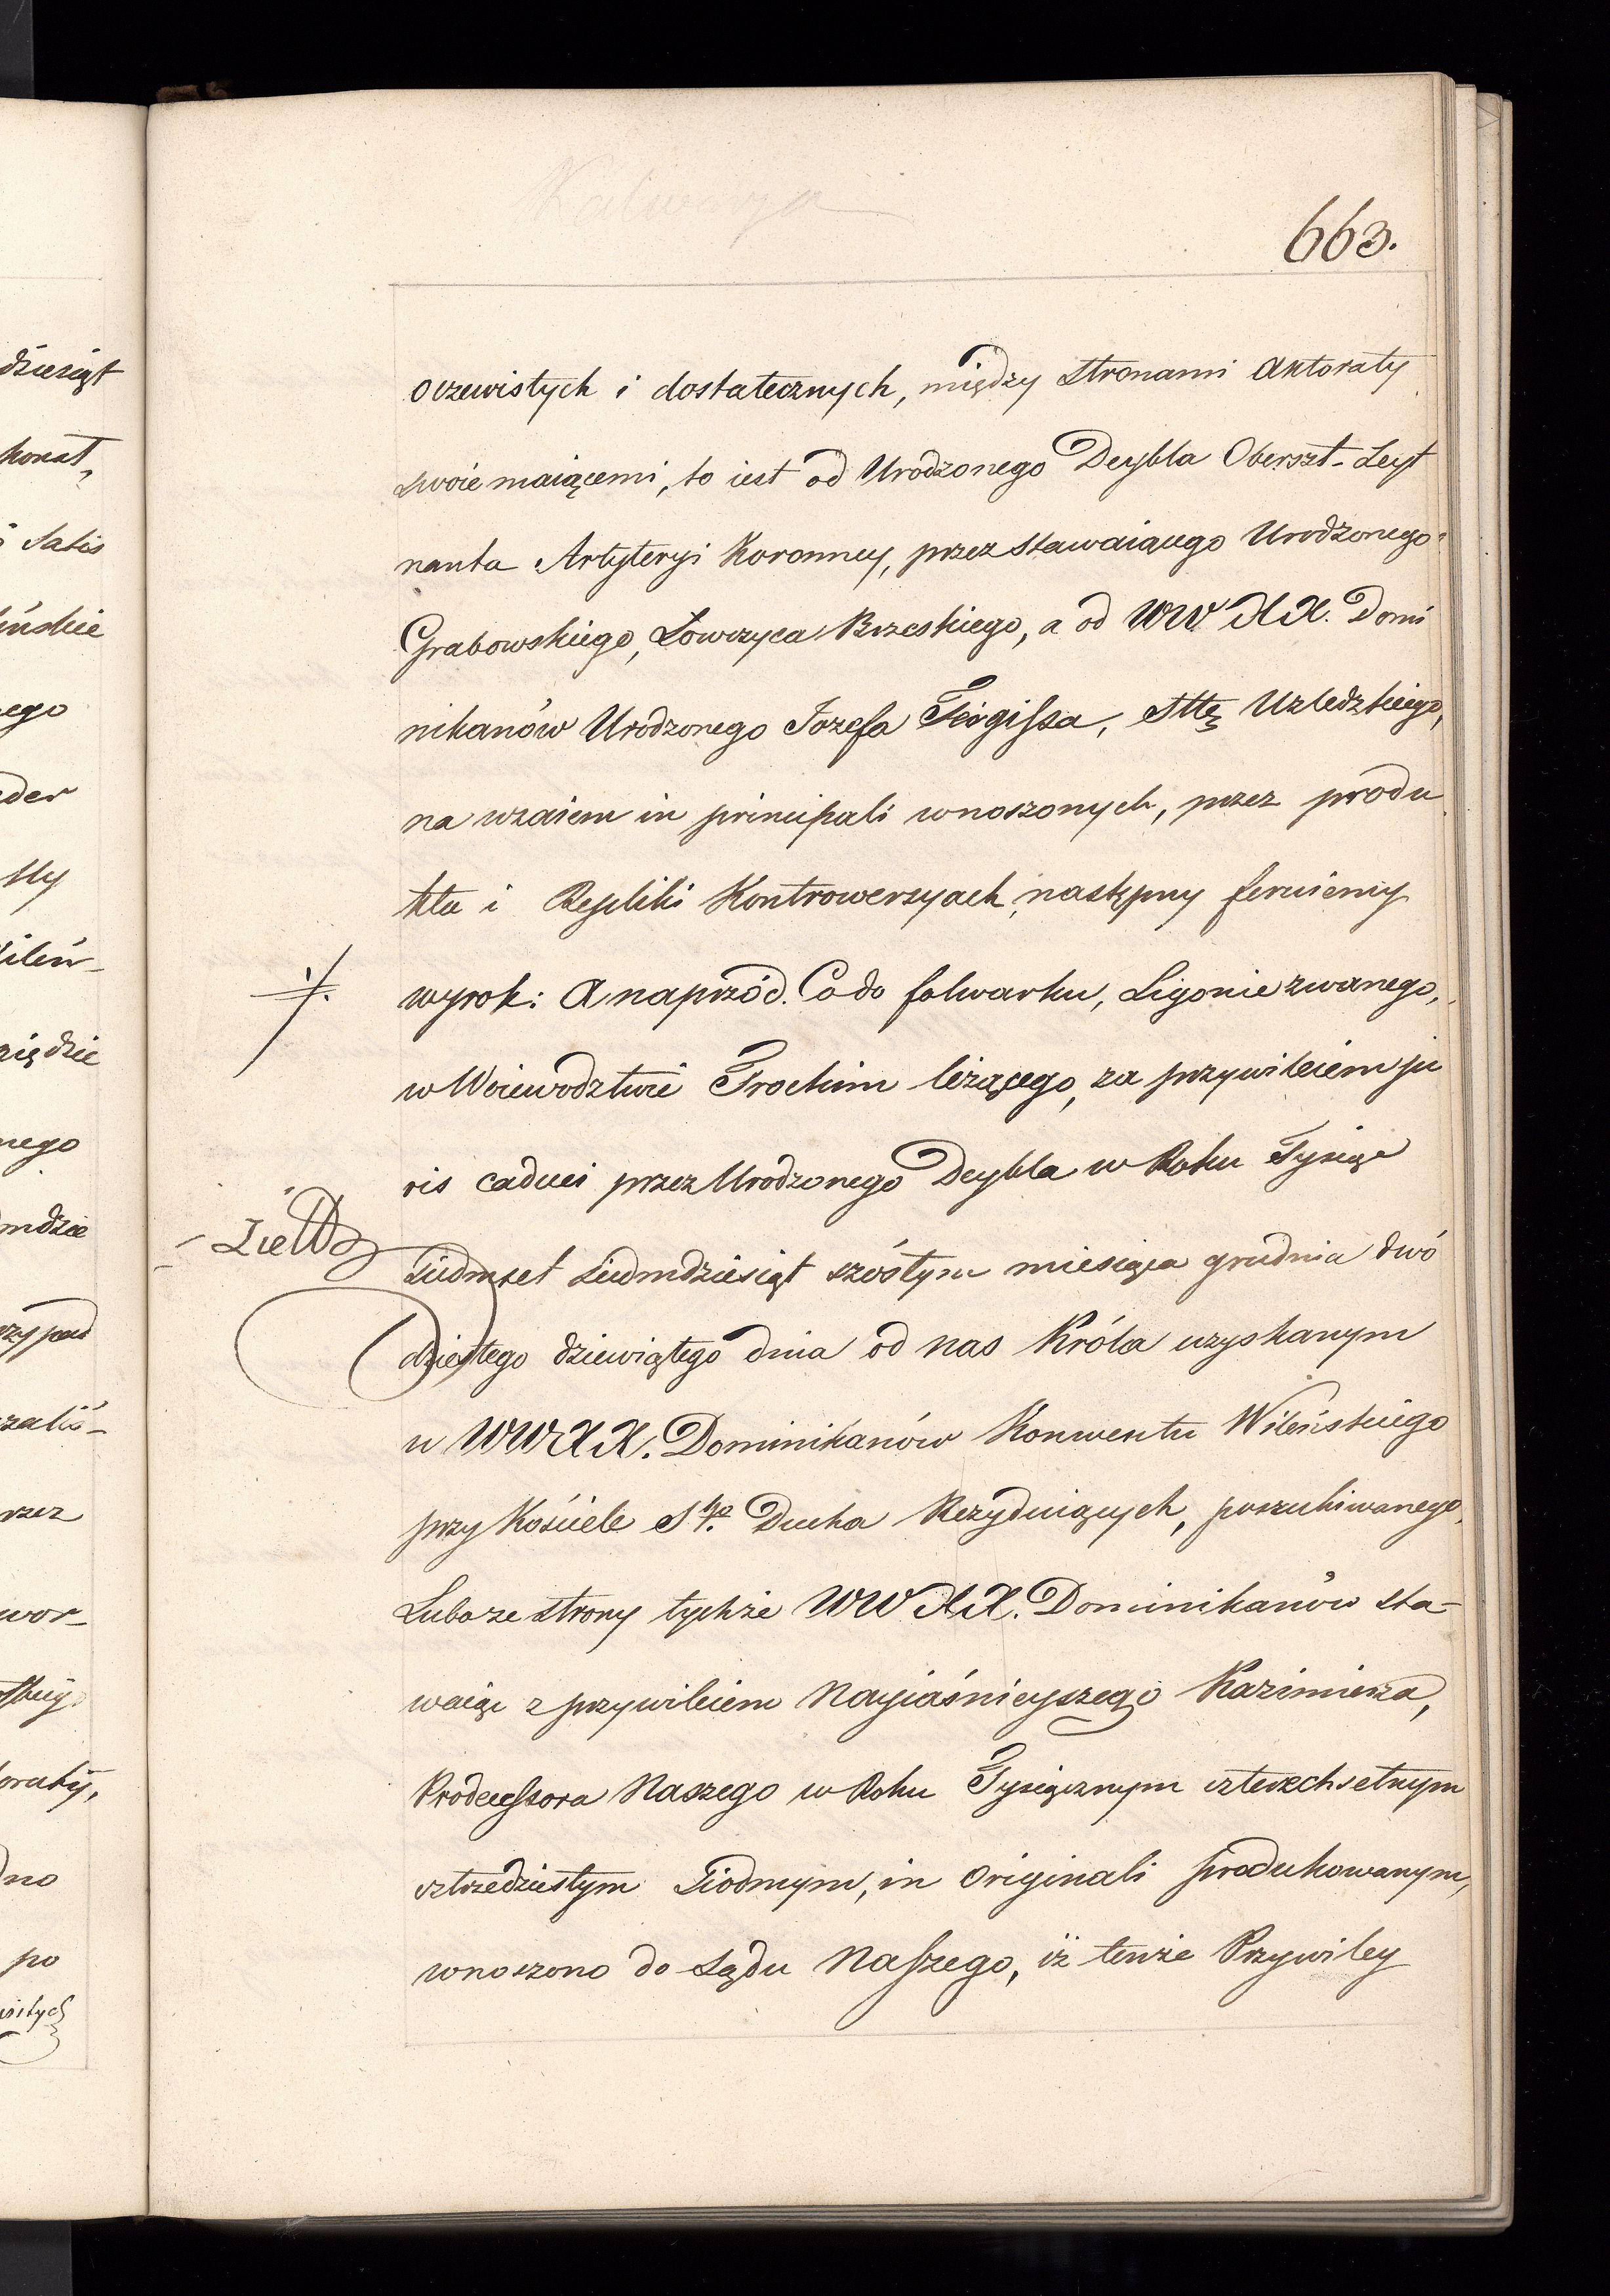 Kalwarya
663.
oczewistych i dostatecznych, między Stronami Aktoraty
swoie maiącemi, to iest od Urodzonego Deybla Oberszt-Leyt
nanta Artyleryi Koronney, przez stawaiącego Urodzonego
Grabowskiego, Łowczyca Brzeskiego, a od WW XX. Domi
nikanów Urodzonego Jozefa Uzledzkiego,
na wzaiem in principali wnoszonych, przez produ
kta i Repliki Kontrowersyach, następny feruiemy
wyrok: A naprzód. Co do folwarku, Ligonie zwanego,
w Woiewodztwie Trockim leżącego, za przywileiem ju
ris caduci przez Urodzonego Deybla w Roku Tysiąc
Siedmset Siedmdziesiąt szóstym miesiąca grudnia dwó
dziestego dziewiątego dnia od nas Króla uzyskanym
u WW XX. Dominikanów Konwentu Wileńskiego
przy Kościele Sgo. Ducha Rezyduiących, poszukiwanego,
Lubo ze strony tychże WW XX. Dominikanów sta-
waiąc z przywileiem Nayiaśnieyszego Kazimierza,
Prodecessora Naszego w Roku Tysiącznym czterechsetnym
cztredziestym Siodmym, in Originali produkowanym,
wnoszono do Sądu Naszego, iż tenże Przywiley
dziesiąt
Satis
nego
ziędzie
nego
rzez
wor-
no
po